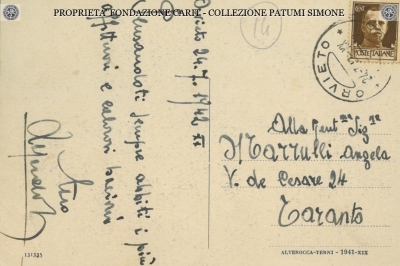 PROPRIETA' FONDAZIONE CARIT - COLLEZIONE PATUMI SIMONE
14
Orvieto 24.7.1942 XX
Pensandoti sempre abbiti i più
affettuosi e calorosi bacioni
tuo
CENT
POSTE ITALIANE
ORVIETO
Alla Gent.ma Sig.na
Marrulli Angela
V. de Cesare 24
Taranto
131321
ALTEROCCA-TERNI - 1941-XIX